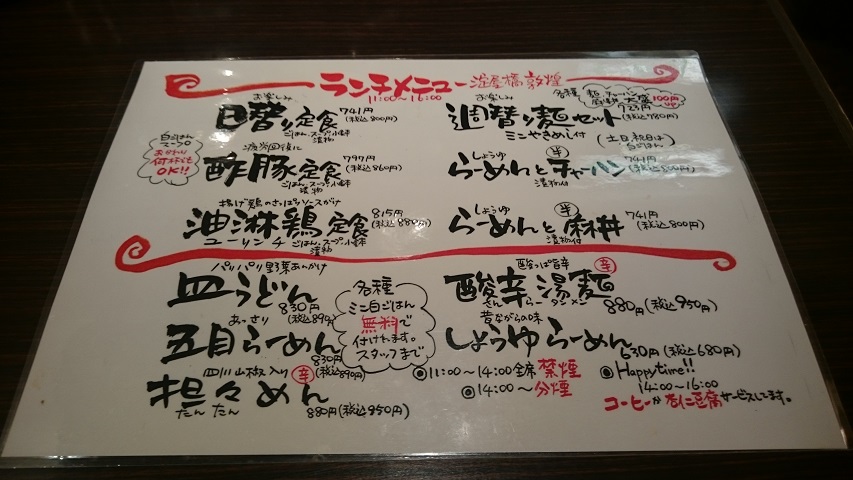 ランチメニュー 淀屋橋 敦煌
11:00～16:00
お楽しみ
日替り定食 741円
(税込800円)
ごはん、スープ、小鉢
漬物
お楽しみ
週替り麺セット 723円
(税込780円)
ミニやきめし付
(土日祝日は
白ごはん)
各種 麺・チャーハン
大盛 100円
up
白ごはん
スープ
おかわり
何杯でも
OK!!
疲労回復に
酢豚定食 797円
(税込860円)
ごはん、スープ、小鉢
漬物
しょうゆ 半
らーめんとチャーハン 741円
(税込800円)
漬物付
揚げ鶏のさっぱりソースがけ
油淋鶏定食 815円
(税込880円)
ユーリンチ ごはん、スープ、小鉢
漬物
しょうゆ 半
らーめんと麻丼 741円
(税込800円)
漬物付
パリパリ野菜あんかけ
皿うどん
830円
(税込890円)
あっさり
五目らーめん
830円
(税込890円)
四川山椒入り 辛
担々めん
たんたん 880円(税込950円)
各種
ミニ白ごはん
無料で
付けれます。
スタッフまで
酸っぱ旨辛 辛
酸辛湯麺
さんらータンメン 880円(税込950円)
昔ながらの味
しょうゆらーめん
630円(税込680円)
◎11:00～14:00全席禁煙
◎14:00～分煙
◎Happytime!!
14:00～16:00
コーヒーか杏仁豆腐サービスしてます。